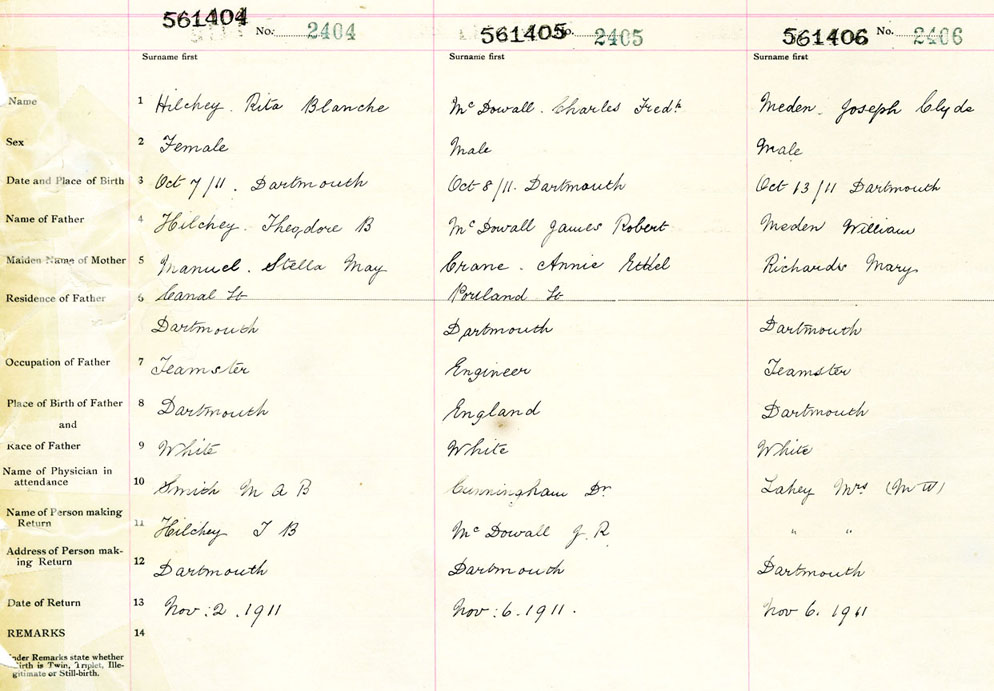 561404 No. 2404 561405 No. 2405 561406 No. 2406
Surname first Surname first Surname first
Name 1 Hilchey. Rita Blanche McDowall. Charles Fredk Meden. Joseph Clyde
Sex 2 Female Male Male
Date and Place of Birth 3 Oct 7/11. Dartmouth Oct 8/11. Dartmouth Oct 13/11 Dartmouth
Name of Father 4 Hilchey. Theodore B McDowall James Robert Meden William
Maiden Name of Mother 5 Manuel. Stella May Crane. Annie Ethel Richards Mary
Residence of Father 6 Canal St Portland St
Dartmouth Dartmouth Dartmouth
Occupation of Father 7 Teamster Engineer Teamster
Place of Birth of Father 8 Dartmouth England Dartmouth
and
Race of Father 9 White White White
Name of Physician in
attendance 10 Smith M A B Cunningham Dr Lahey Mrs (M W)
Name of Person making
Return 11 Hilchey T B McDowall J. R " "
Address of Person mak-
ing Return 12 Dartmouth Dartmouth Dartmouth
Date of Return 13 Nov: 2. 1911 Nov: 6. 1911. Nov 6. 1911
REMARKS 14
Under Remarks state whether
Birth is Twin, Triplet, Ille-
gitimate or Still-birth.